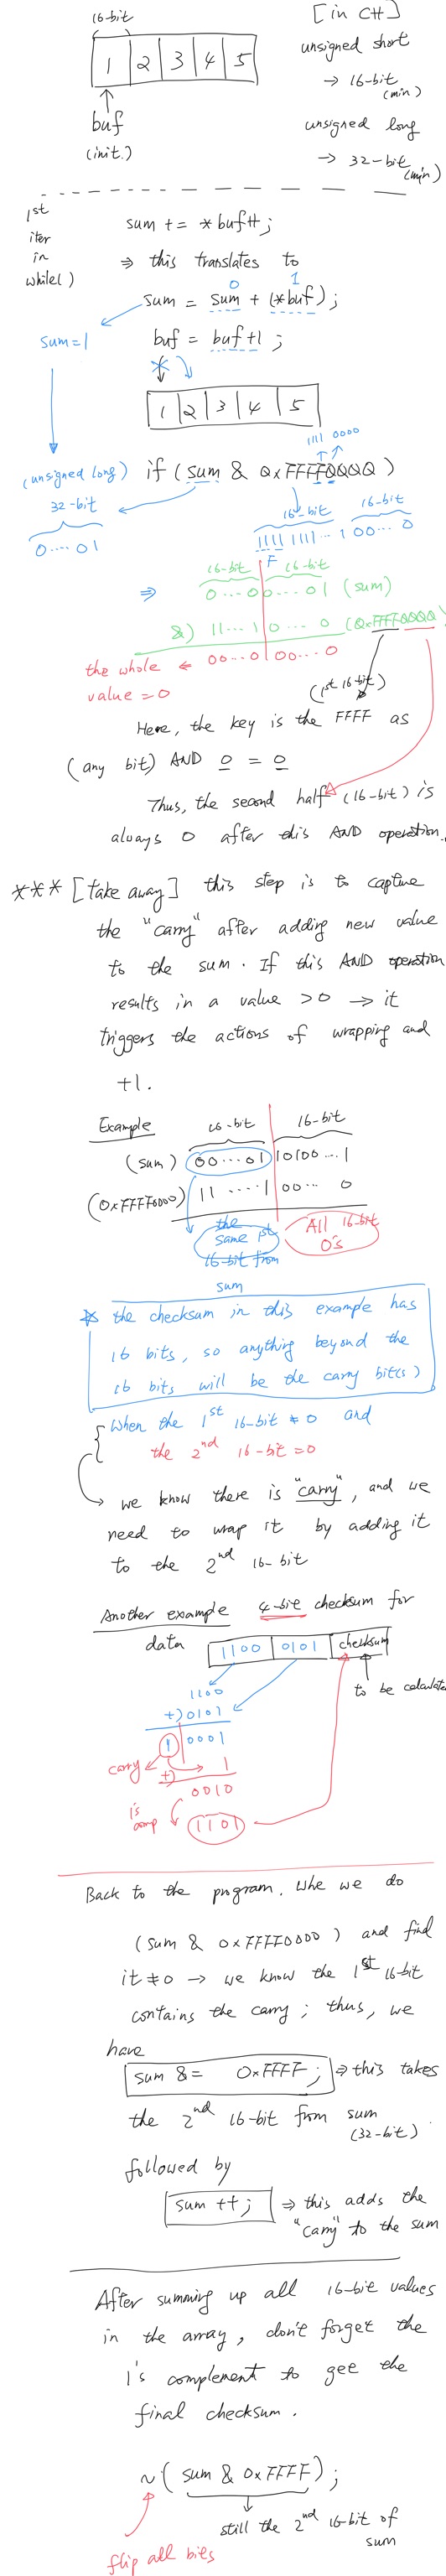 16-bit
[in C++]
1 2 3 4 5
unsigned short
→ 16-bit
(min)
buf
(init.)
unsigned long
→ 32-bit
(min)
1st
iter
in
while()
sum += *buf++;
⇒ this translates to
0 1
sum = sum + (*buf);
sum=1
buf = buf+1;
1 2 3 4 5
1111 0000
(unsigned long)
if (sum & 0xFFFF0000)
32-bit
0....01
16-bit 16-bit
1111 1111... 1 00... 0
F
16-bit 16-bit
⇒ 0...0 0...01 (sum)
&) 11...1 0... 0 (0xFFFF0000)
the whole ← 00...0 00...0
value = 0
(1st 16bit)
Here, the key is the FFFF as
(any bit) AND 0 = 0
Thus, the second half (16-bit) is
always 0 after this AND operation.
*** [take away] this step is to capture
the "carry" after adding new value
to the sum. If this AND operation
results in a value >0 → it
triggers the actions of wrapping and
+1.
Example
16-bit 16-bit
(sum) 00...01 10100...1
(0xFFFF0000) 11 .....1 00... 0
the
same 1st
16-bit from
sum
All 16-bit
0's
* the checksum in this example has
16 bits, so anything beyond the
16 bits will be the carry bit(s)
When the 1st 16-bit ≠ 0 and
the 2nd 16-bit = 0
→ we know there is "carry", and we
need to wrap it by adding it
to the 2nd 16-bit
Another example 4-bit checksum for
data
1100 0101 checksum
to be calculated
1100
+) 0101
1 0001
carry +) 1
0010
1's
comp
1101
Back to the program. Whe we do
(sum & 0xFFFF0000) and find
it ≠ 0 → we know the 1st 16-bit
contains the carry; thus, we
have
sum &= 0xFFFF; ⇒ this takes
the 2nd 16-bit from sum
(32-bit).
followed by
sum ++; ⇒ this adds the
"carry" to the sum
After summing up all 16-bit values
in the array, don't forget the
1's complement to get the
final checksum.
~(sum & 0xFFFF);
still the 2nd 16-bit of
sum
flip all bits